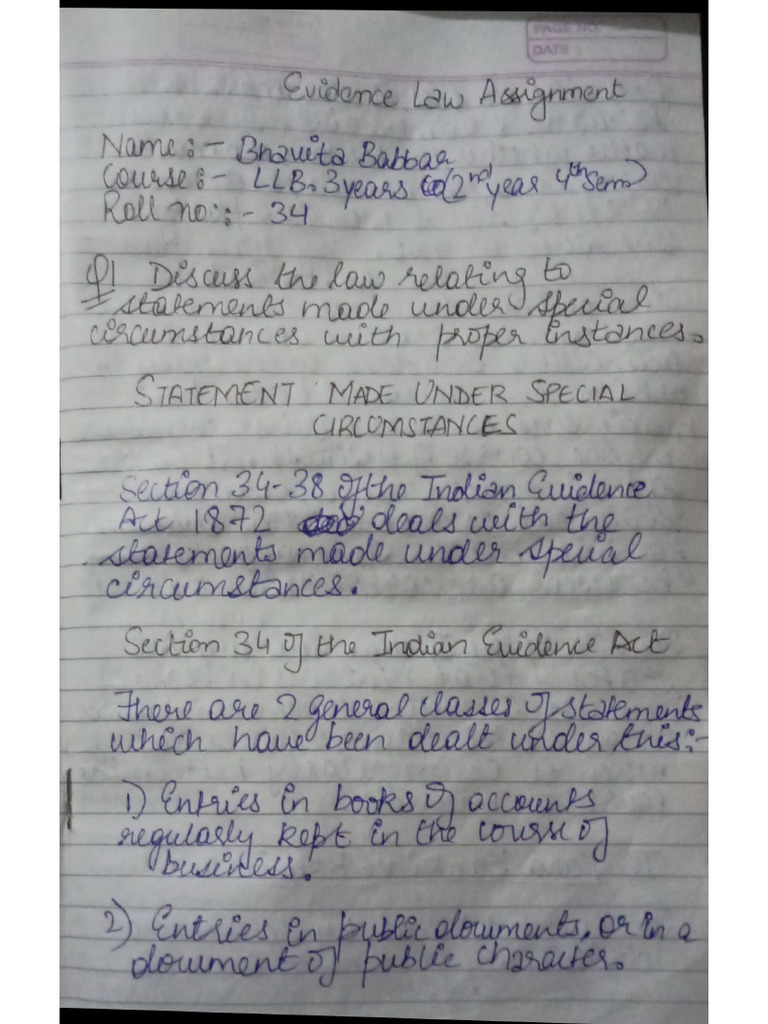 PAGE NO.
DATE :
Evidence Law Assignment
Name:- Bhavita Babbar
Course:- LLB. 3 years (2nd year 4th Sem)
Roll no:- 34
Q1 Discuss the law relating to
statements made under special
circumstances with proper instances.
STATEMENT MADE UNDER SPECIAL
CIRCUMSTANCES
Section 34-38 of the Indian Evidence
Act 1872 deals with the
statements made under special
circumstances.
Section 34 of the Indian Evidence Act
There are 2 general classes of statements
which have been dealt under this:-
1) Entries in books of accounts
regularly kept in the course of
business.
2) Entries in public documents, or in a
document of public character.